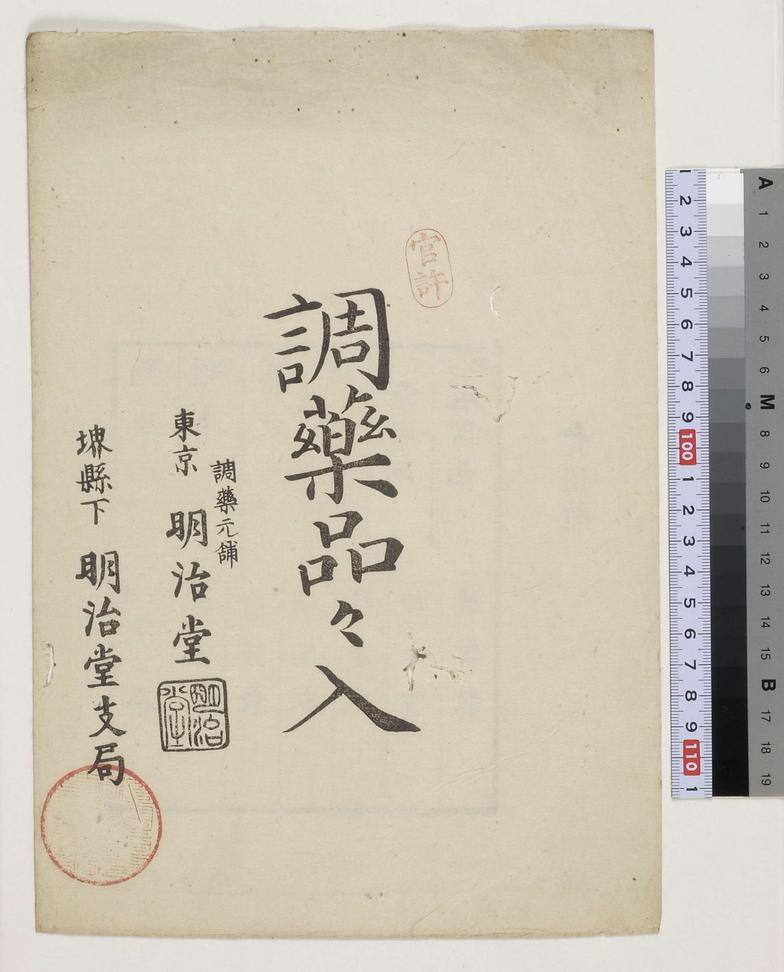 官許
調藥品々入
調藥元舗
東京 明治堂
明治堂
堺縣下 明治堂支局
1 2 3 4 5 6 7 8 9 100 1 2 3 4 5 6 7 8 9 110 1
A 1 2 3 4 5 6 M 8 9 10 11 12 13 14 15 B 17 18 19